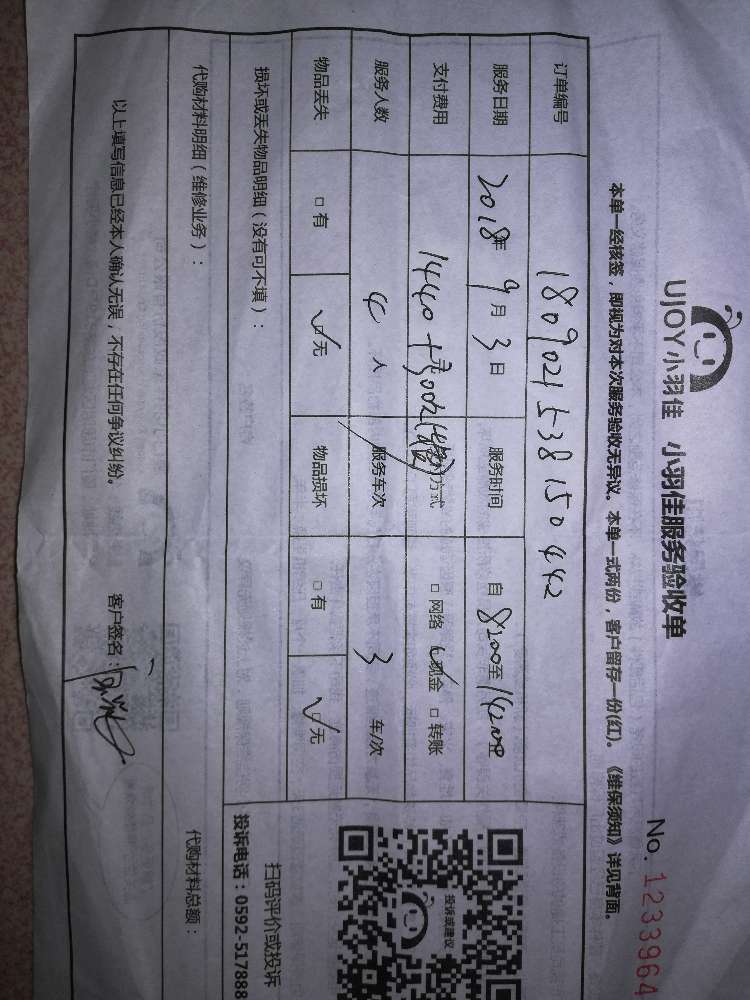 UJOY小羽佳 小羽佳服务验收单
No. 1233964
本单一经核签，即视为对本次服务验收无异议。本单一式两份，客户留存一份(红)。《维保须知》详见背面。
订单编号 1809021538150442
服务日期 2018年9月3日 服务时间 自8:00至14:20
支付费用 1440+ 300 方式 □ 网络 ☑ 现金 □ 转账
服务人数 4 人 服务车次 3 车/次
物品丢失 □ 有 ☑ 无 物品损坏 □ 有 ☑ 无
损坏或丢失物品明细（没有可不填）：
代购材料明细（维修业务）： 代购材料总额：
以上填写信息已经本人确认无误，不存在任何争议纠纷。 客户签名：
投诉或建议
扫码评价或投诉
投诉电话：0592-517888